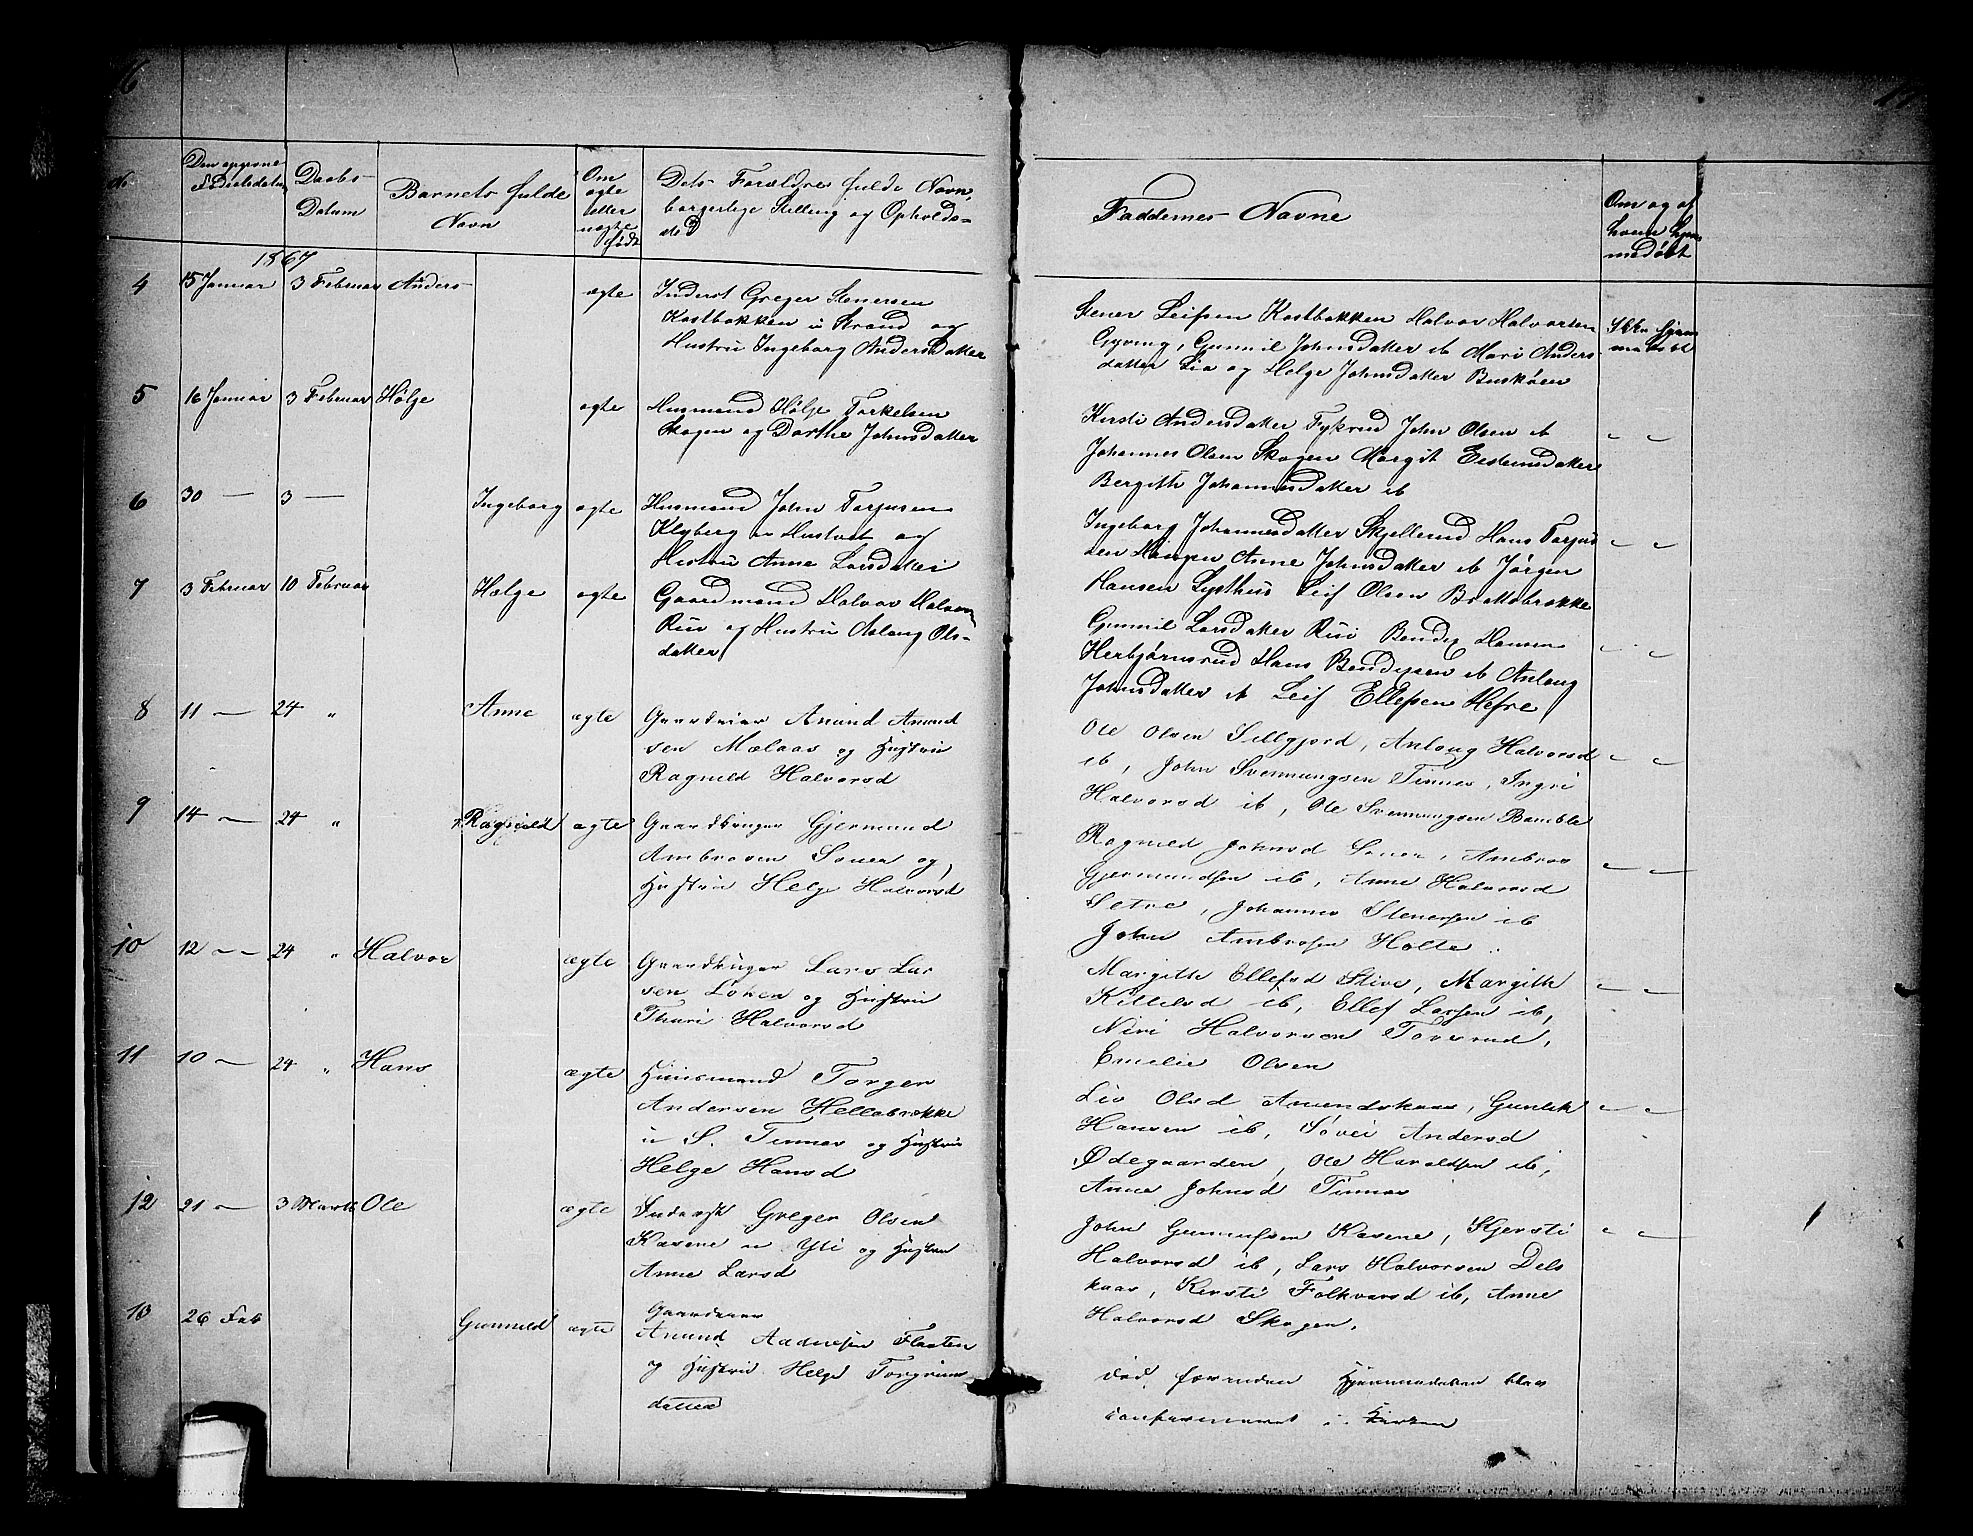 16
17
No
Den opgivne Fødselsdatum
Daabs-Datum
Barnets fulde Navn
Om ægte eller uægte født
Dets Forældres fulde Navn,
borgerlige Stilling og Opholds-
sted
Faddernes Navne
Om og af
hvem hjem
medøbt
1867
4 15 Januar 3 Februar Anders ægte Inderst Greger Stenersen
Kastbakken u Strand og
Hustru Ingeborg Andersdatter
Stener Leifsen Kastbakken Halvor Halvorsen
Gyving, Gunnil Johnsdatter ib Mari Anders-
datter Lia og Helge Johnsdatter Buskøen
Ikke hjem
medøbt
5 16 Januar 3 Februar Hølge ægte Husmand Hølje Torkelsen
Skogen og Dorthe Johnsdatter
Kirsti Andersdatter Fykrud John Olsen ib
Johannes Olsen Skogen Margit Eistensdatter
Bergith Johannesdatter ib
6 30 — 3 — Ingeborg ægte Husmand John Torjusen
Klyberg u Hustvet og
Hustru Anne Larsdatter
Ingeborg Johannesdatter Skjellerud Hans Torjus
sen Anne Johnsdatter ib Jørgen
Hansen Lysthus Leif Olsen Brattebrekke
7 3 Februar 10 Februar Helge ægte Gaardmand Halvor Halvors
Rui og Hustru Aslaug Ols-
datter
Gunnil Larsdatter Rui Bendix Hansen
Herbjørnsrud Hans Bendixsen ib Anlaug
Johnsdatter ib Leif Ellefsen Hefre
8 11 — 24 " Anne ægte Gaardeier Anund Anund
sen Mælaas og Hustru
Ragnild Halvorsd
Ole Olsen Sillgjord, Anlaug Halvorsd
ib, John Svennungsen Tinnes, Ingri
Halvorsd ib, Ole Svennungsen Bamble
9 14 — 24 " Ragnild ægte Gaardbruger Gjermund
Ambrosen Sauer og
Hustru Helge Halvorsd
Ragnild Johnsd Sauer, Ambros
Gjermundsen ib, Anne Halvorsd
Setre, Johannes Stenersen ib
John Ambrosen Holte.
10 12 — 24 " Halvor ægte Gaardbruger Lars Lar
sen Løken og Hustru
Thuri Halvorsd
Margith Ellefsd Stive, Margith
Kittelsd ib, Ellef Larsen ib,
Niri Halvorson Toverud,
Emelie Olsen
11 10 — 24 " Hans ægte Huusmand Torger
Andersen Hellebrekke
u S. Tinnes og Hustru
Helge Hansd
Liv Olsd Amundskaas, Gunlek
Hansen ib, Søvei Andersd
Ødegaarden, Ole Haraldsen ib,
Anne Johnsd Tinnes
12 21 — 3 Marts Ole ægte Inderst Greger Olsen
Kasene u Yli og Hustru
Anne Larsd
John Gunnufsen Kasene, Kjersti
Halvorsd ib, Lars Halvorsen Dels
kaas, Kersti Folkvorsd ib, Anne
Halvorsd Skogen.
13 26 Feb Gunnild ægte Gaardeier
Anund Aadnesen Flaaten
og Hustru Helge Torgrims
datter
død, forinden Hjemmedaaben blev
confirmeret i Kirken